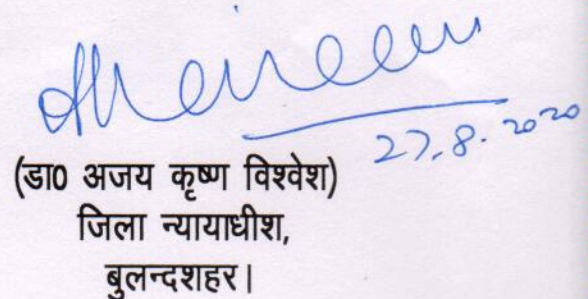 27.8.2020
(डा0 अजय कृष्ण विश्वेश)
जिला न्यायाधीश,
बुलन्दशहर।